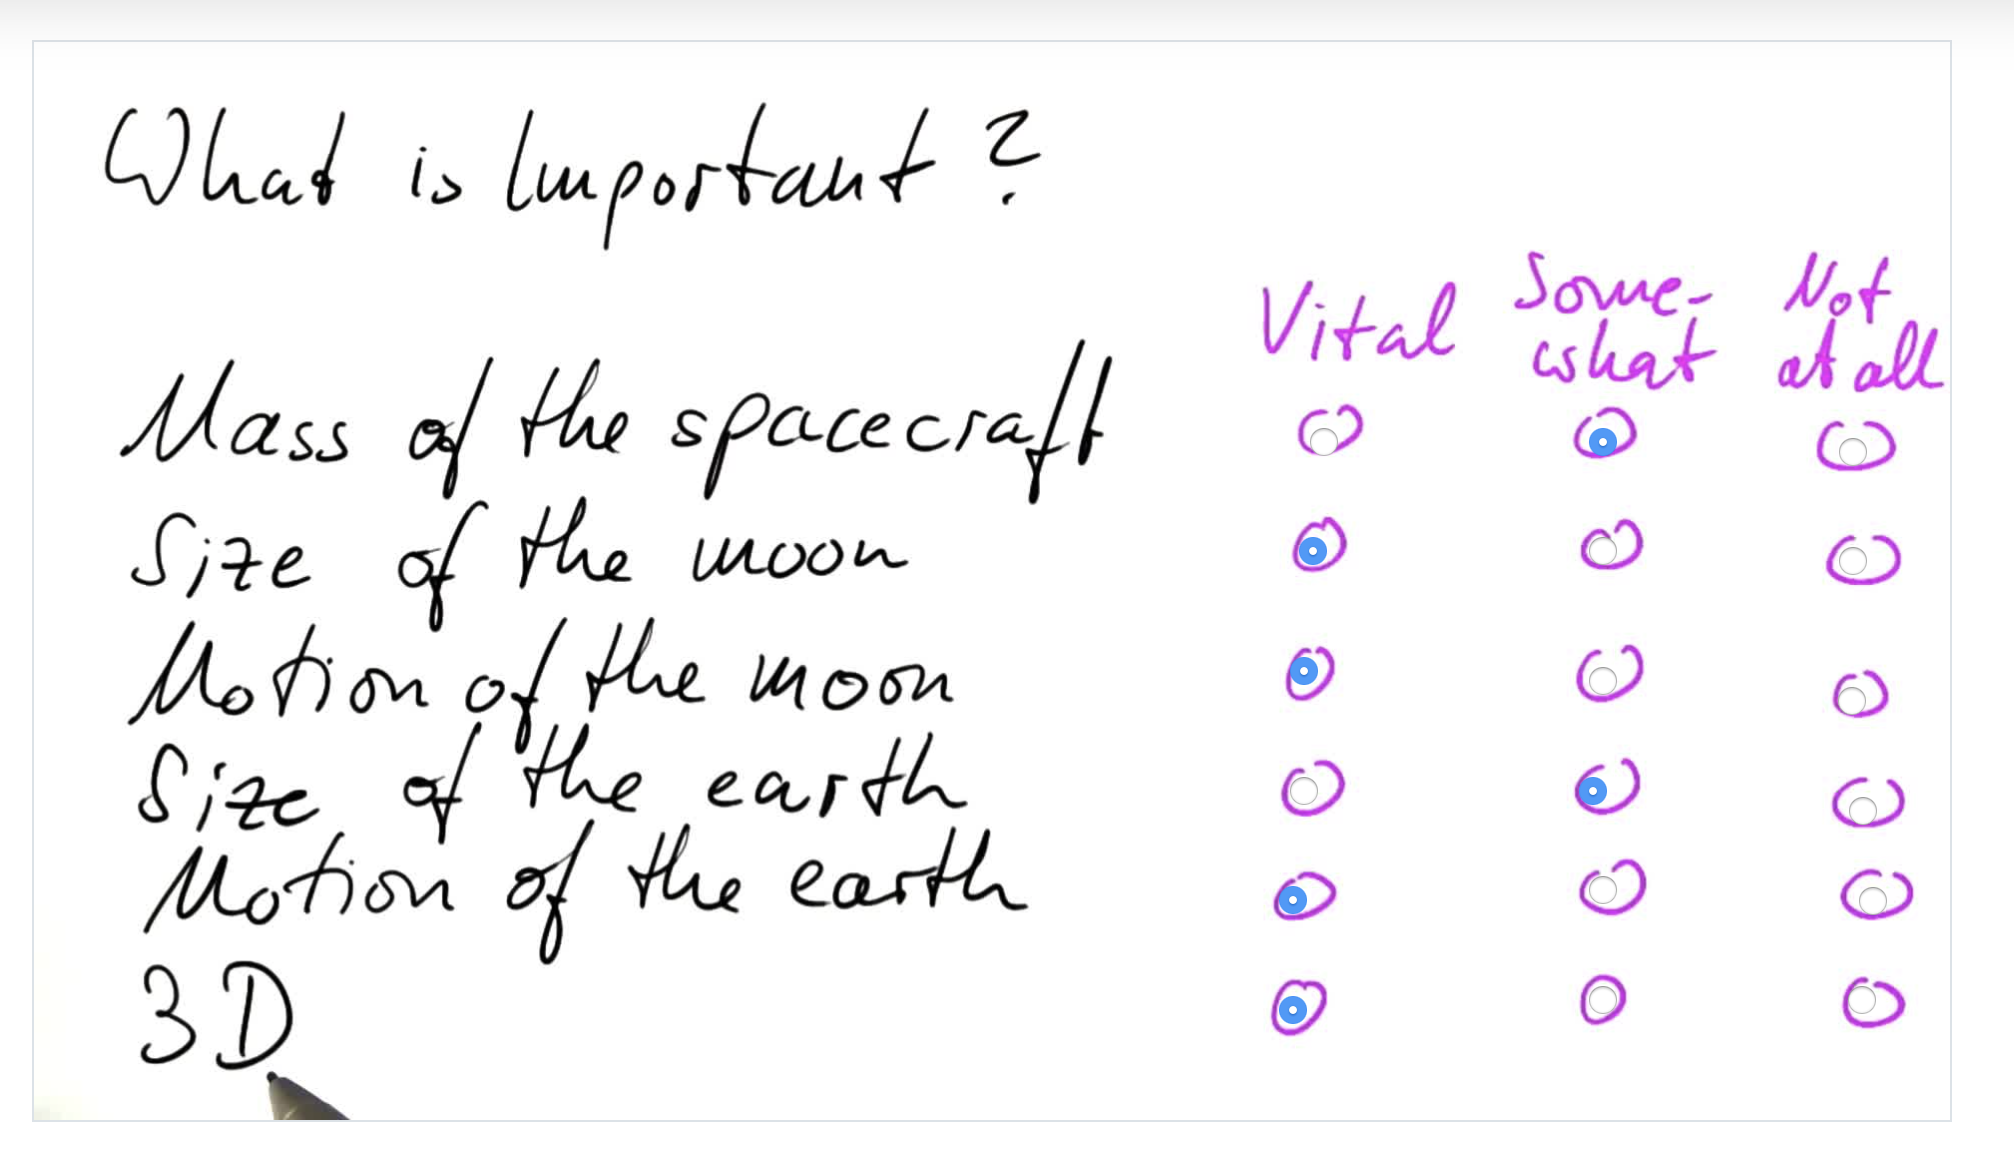 What is Important?
Vital Some-what Not at all
Mass of the spacecraft
Size of the moon
Motion of the moon
Size of the earth
Motion of the earth
3D